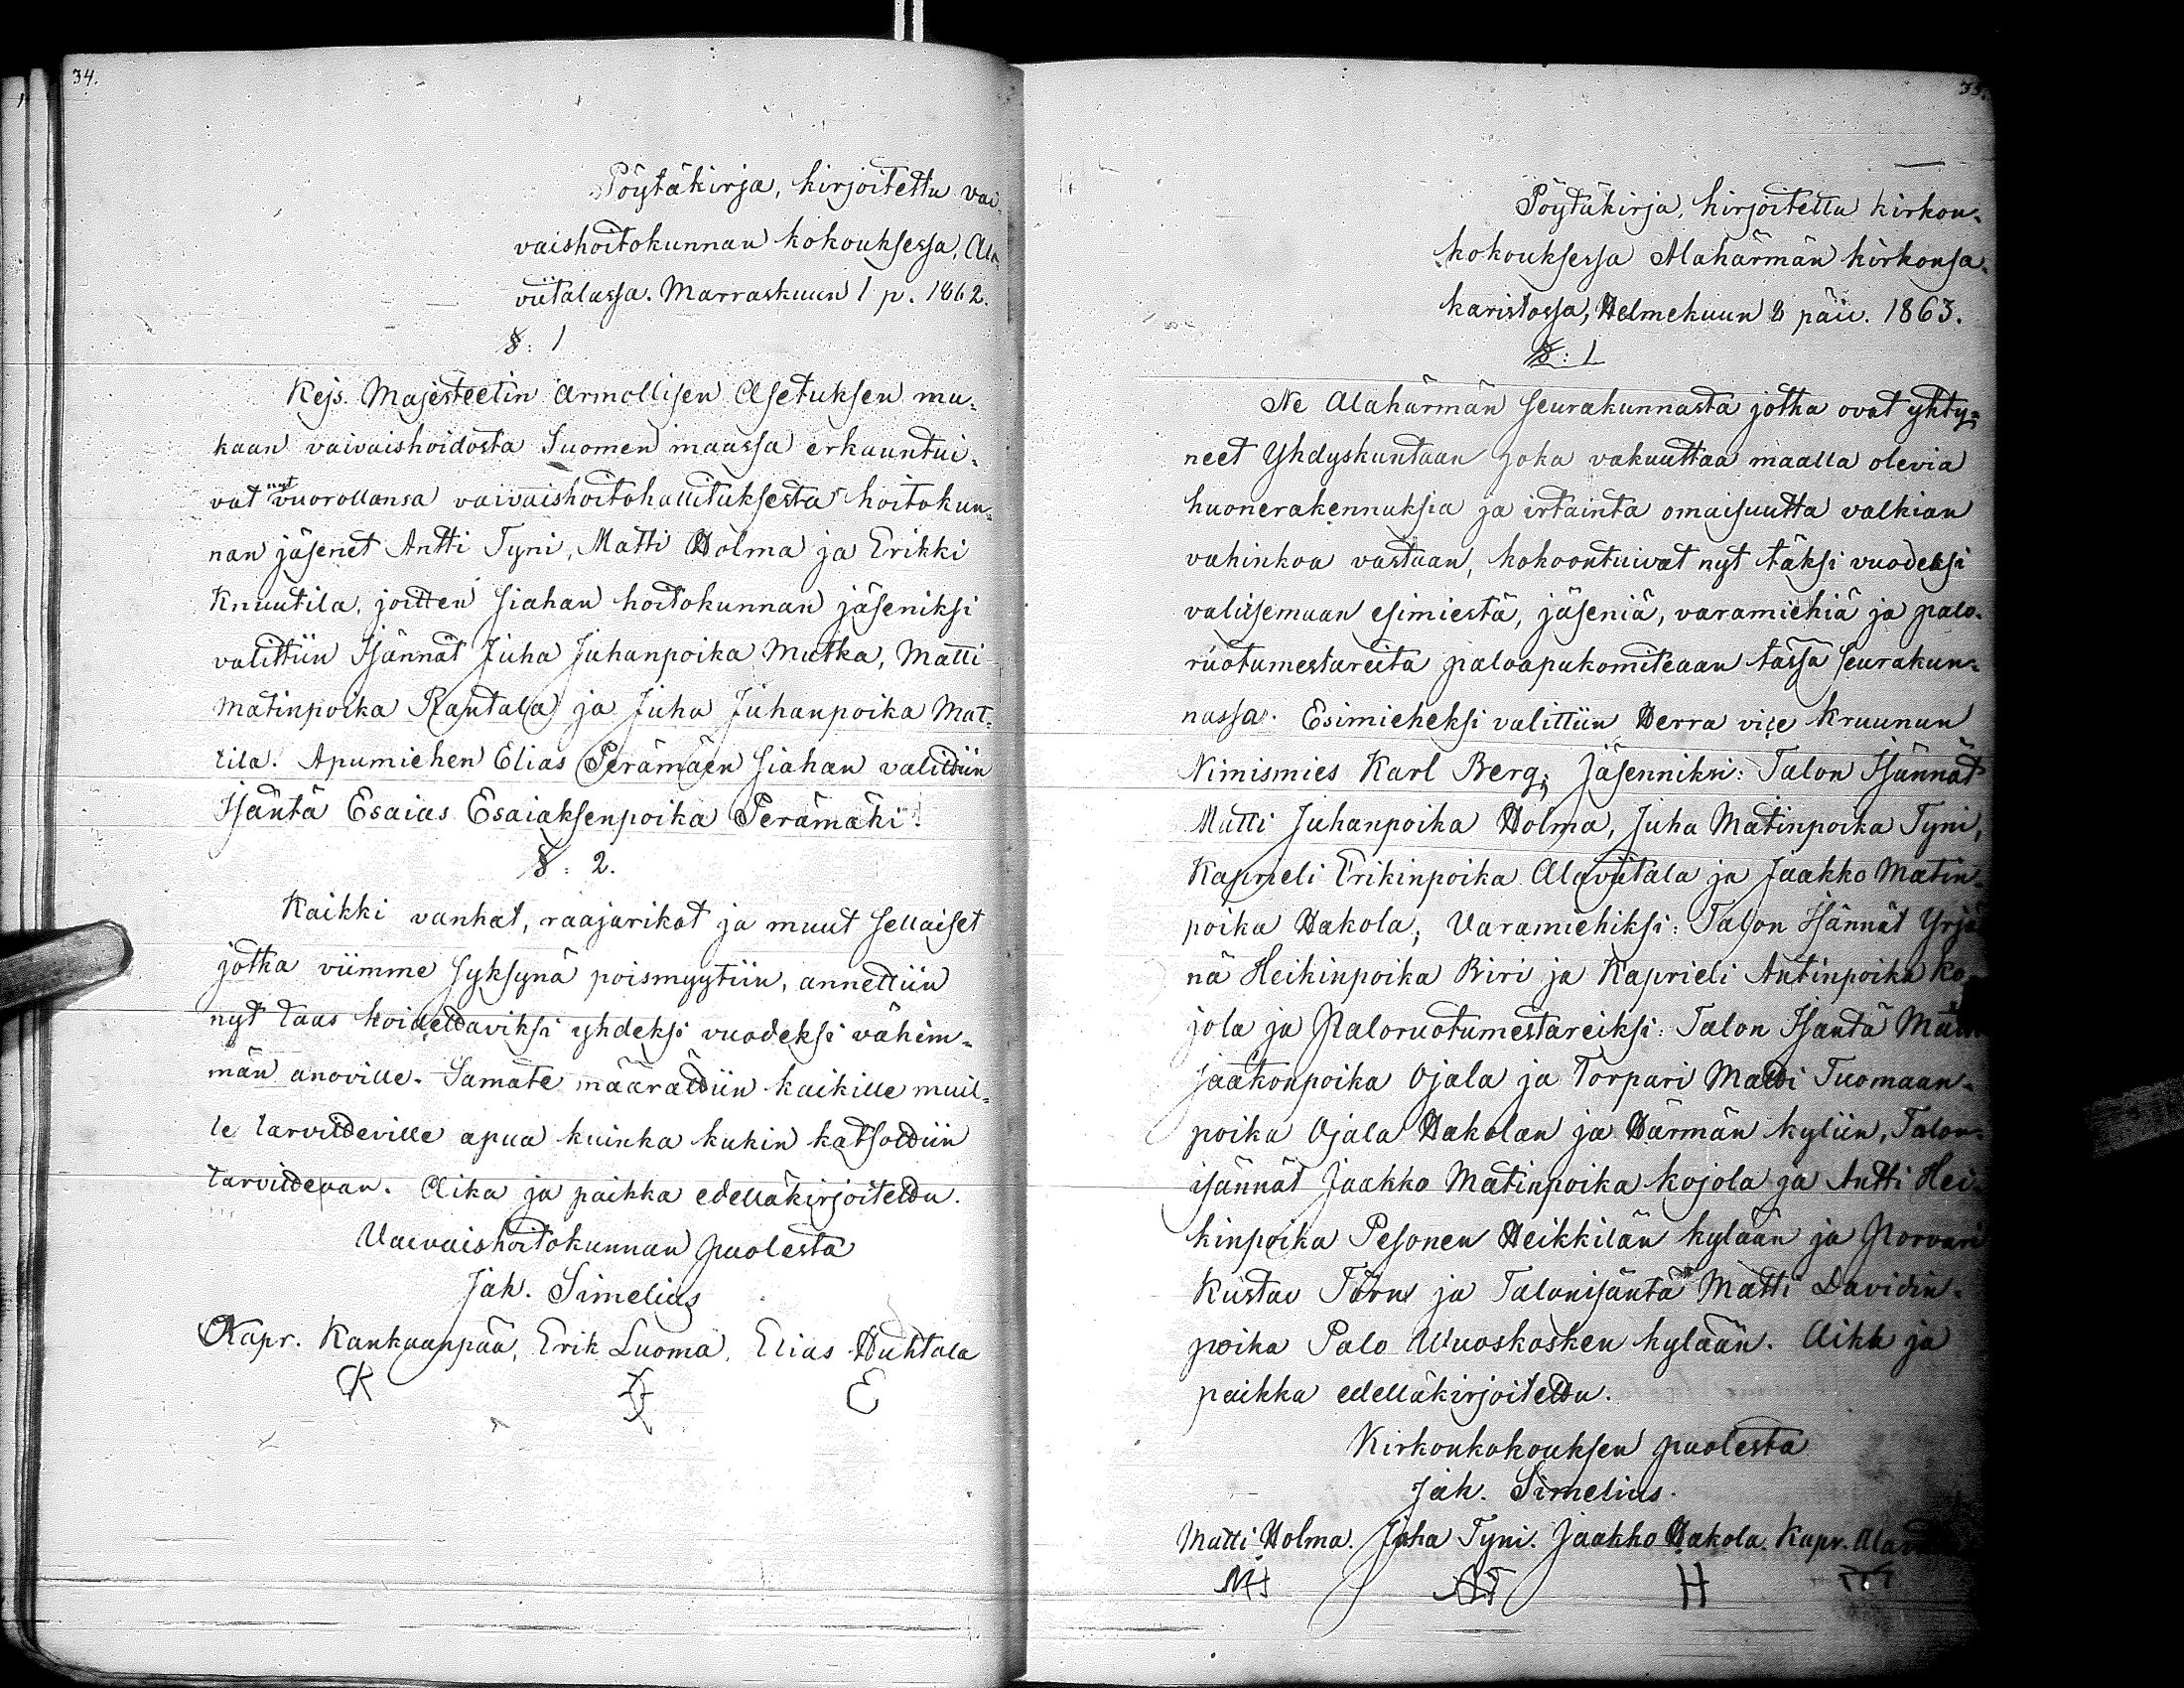 34.
Pöytäkirja, kirjoitettu vai-
vaishoitokunnan kokouksessa, Ala-
viitalassa. Marraskuun 1 p. 1862.
§: 1
Kejs. Majesteetin Armollisen Asetuksen mu-
kaan vaivaishoidosta Suomen maassa erkauntui-
vat nyt vuorollansa vaivaishoitohallituksesta hoitokun-
nan jäsenet Antti Tyni, Matti Holma ja Erikki
Knuutila, joitten siahan hoitokunnan jäseniksi
valittiin Isännät Juha Juhanpoika Mutka, Matti
Matinpoika Rantala ja Juha Juhanpoika Mat-
tila. Apumiehen Elias Perämäen siahan valittiin
Isäntä Esaias Esaiaksenpoika Perämäki.
§: 2.
Kaikki vanhat, raajarikot ja muut sellaiset
jotka viimme syksynä poismyytiin, annettiin
nyt taas hoidettaviksi yhdeksi vuodeksi vähim-
män anoville. Samate määrättiin kaikille muil-
le tarvitteville apua kuinka kukin katsottiin
tarvittevan. Aika ja paikka edelläkirjoitettu.
Vaivaishoitokunnan puolesta
Jak. Simelius
Kapr. Kankaanpää, Erik Luoma, Elias Huhtala
K E
35.
Pöytäkirja, kirjoitettu kirkon-
kokouksessa Alahärmän kirkonsa-
karistossa, Helmekuun 8 päiv. 1863.
§: 1
Ne Alahärmän seurakunnasta jotka ovat yhty-
neet Yhdyskuntaan joka vakuuttaa maalla olevia
huonerakennuksia ja irtainta omaisuutta valkian
vahinkoa vastaan, kokoontuivat nyt täksi vuodeksi
valitsemaan esimiestä, jäseniä, varamiehiä ja palo-
ruotumestareita paloapukomiteaan tässä seurakun-
nassa. Esimieheksi valittiin Herra vice Kruunun
Nimismies Karl Berg; Jäsenniksi: Talon Isännät
Matti Juhanpoika Holma, Juha Matinpoika Tyni,
Kaprieli Erikinpoika Alaviitala ja Jaakko Matin-
poika Hakola; Varamiehiksi: Talon Isännät Yrjä-
nä Heikinpoika Biri ja Kaprieli Antinpoika Ko-
jola ja Paloruotumestareiksi: Talon Isäntä Matti
Jaakonpoika Ojala ja Torpari Matti Tuomaan-
poika Ojala Hakolan ja Härmän kyliin, Talon-
isännät Jaakko Matinpoika Kojola ja Antti Hei-
kinpoika Pesonen Heikkilän kylään ja Porvari
Kustav Törn ja Talonisäntä Matti Davidin-
poika Palo Wuoskosken kylään. Aika ja
paikka edelläkirjoitettu.
Kirkonkokouksen puolesta
Jak. Simelius.
Matti Holma. Juha Tyni. Jaakko Hakola. Kapr.
H